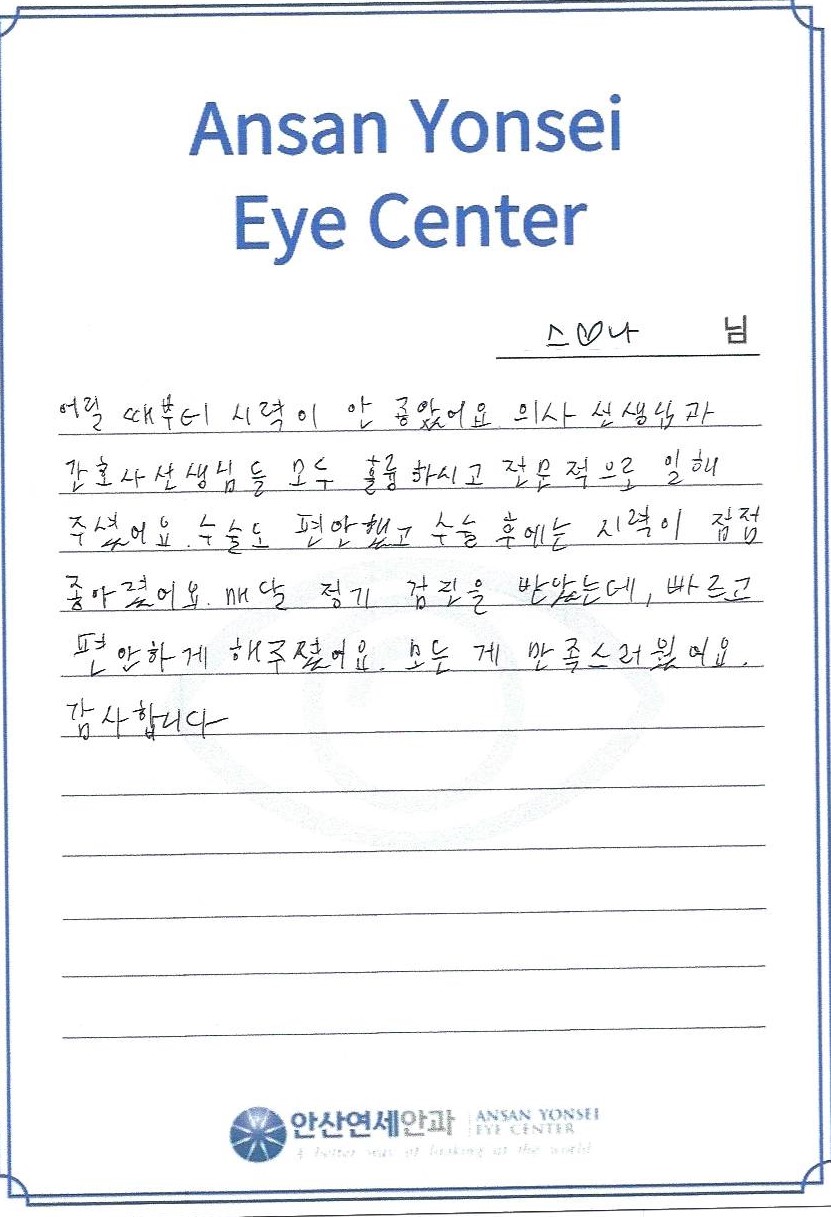 Ansan Yonsei
Eye Center
스♡나 님
어릴 때부터 시력이 안 좋았어요 의사 선생님과
간호사선생님들 모두 훌륭하시고 전문적으로 일해
주셨어요. 수술도 편안했고 수술 후에는 시력이 점점
좋아졌어요. 매달 정기 검진을 받았는데, 빠르고
편안하게 해주셨어요. 모든 게 만족스러웠어요.
감사합니다
안산연세안과 ANSAN YONSEI
EYE CENTER
A better way of looking at the world